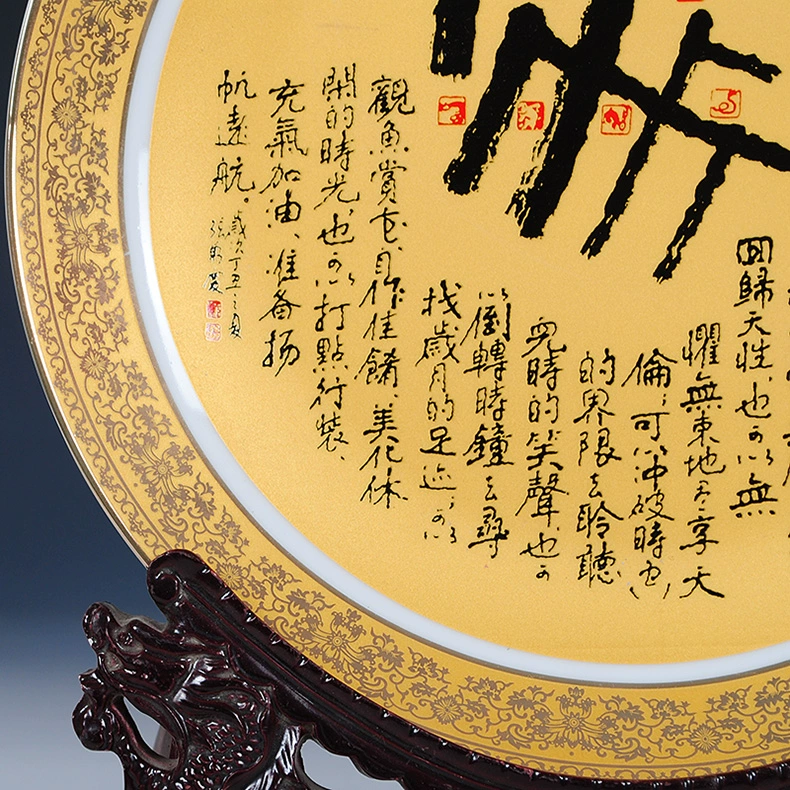 回歸天性，也可以無
懼無束地尽享天
倫；可以沖破時空
的界限去聆聽
兒時的笑聲，也可
以倒轉時鐘去尋
找歲月的足迹；可以
觀魚賞花、自作佳餚、美化休
閑的時光，也可以打點行裝、
充氣加油、准备扬
帆遠航。
歲次丁丑之夏